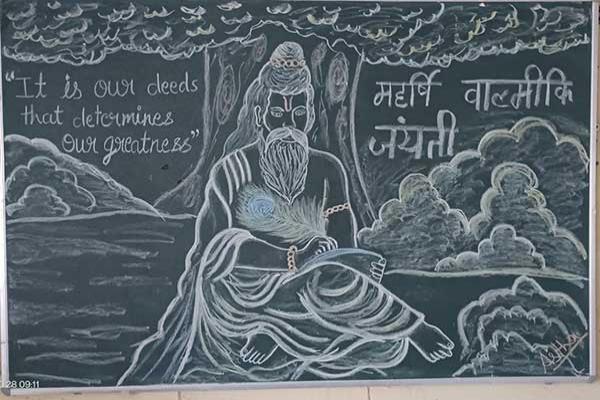 "It is our deeds
that determines
our greatness"
महर्षि वाल्मीकि
जंयती
28 09:11